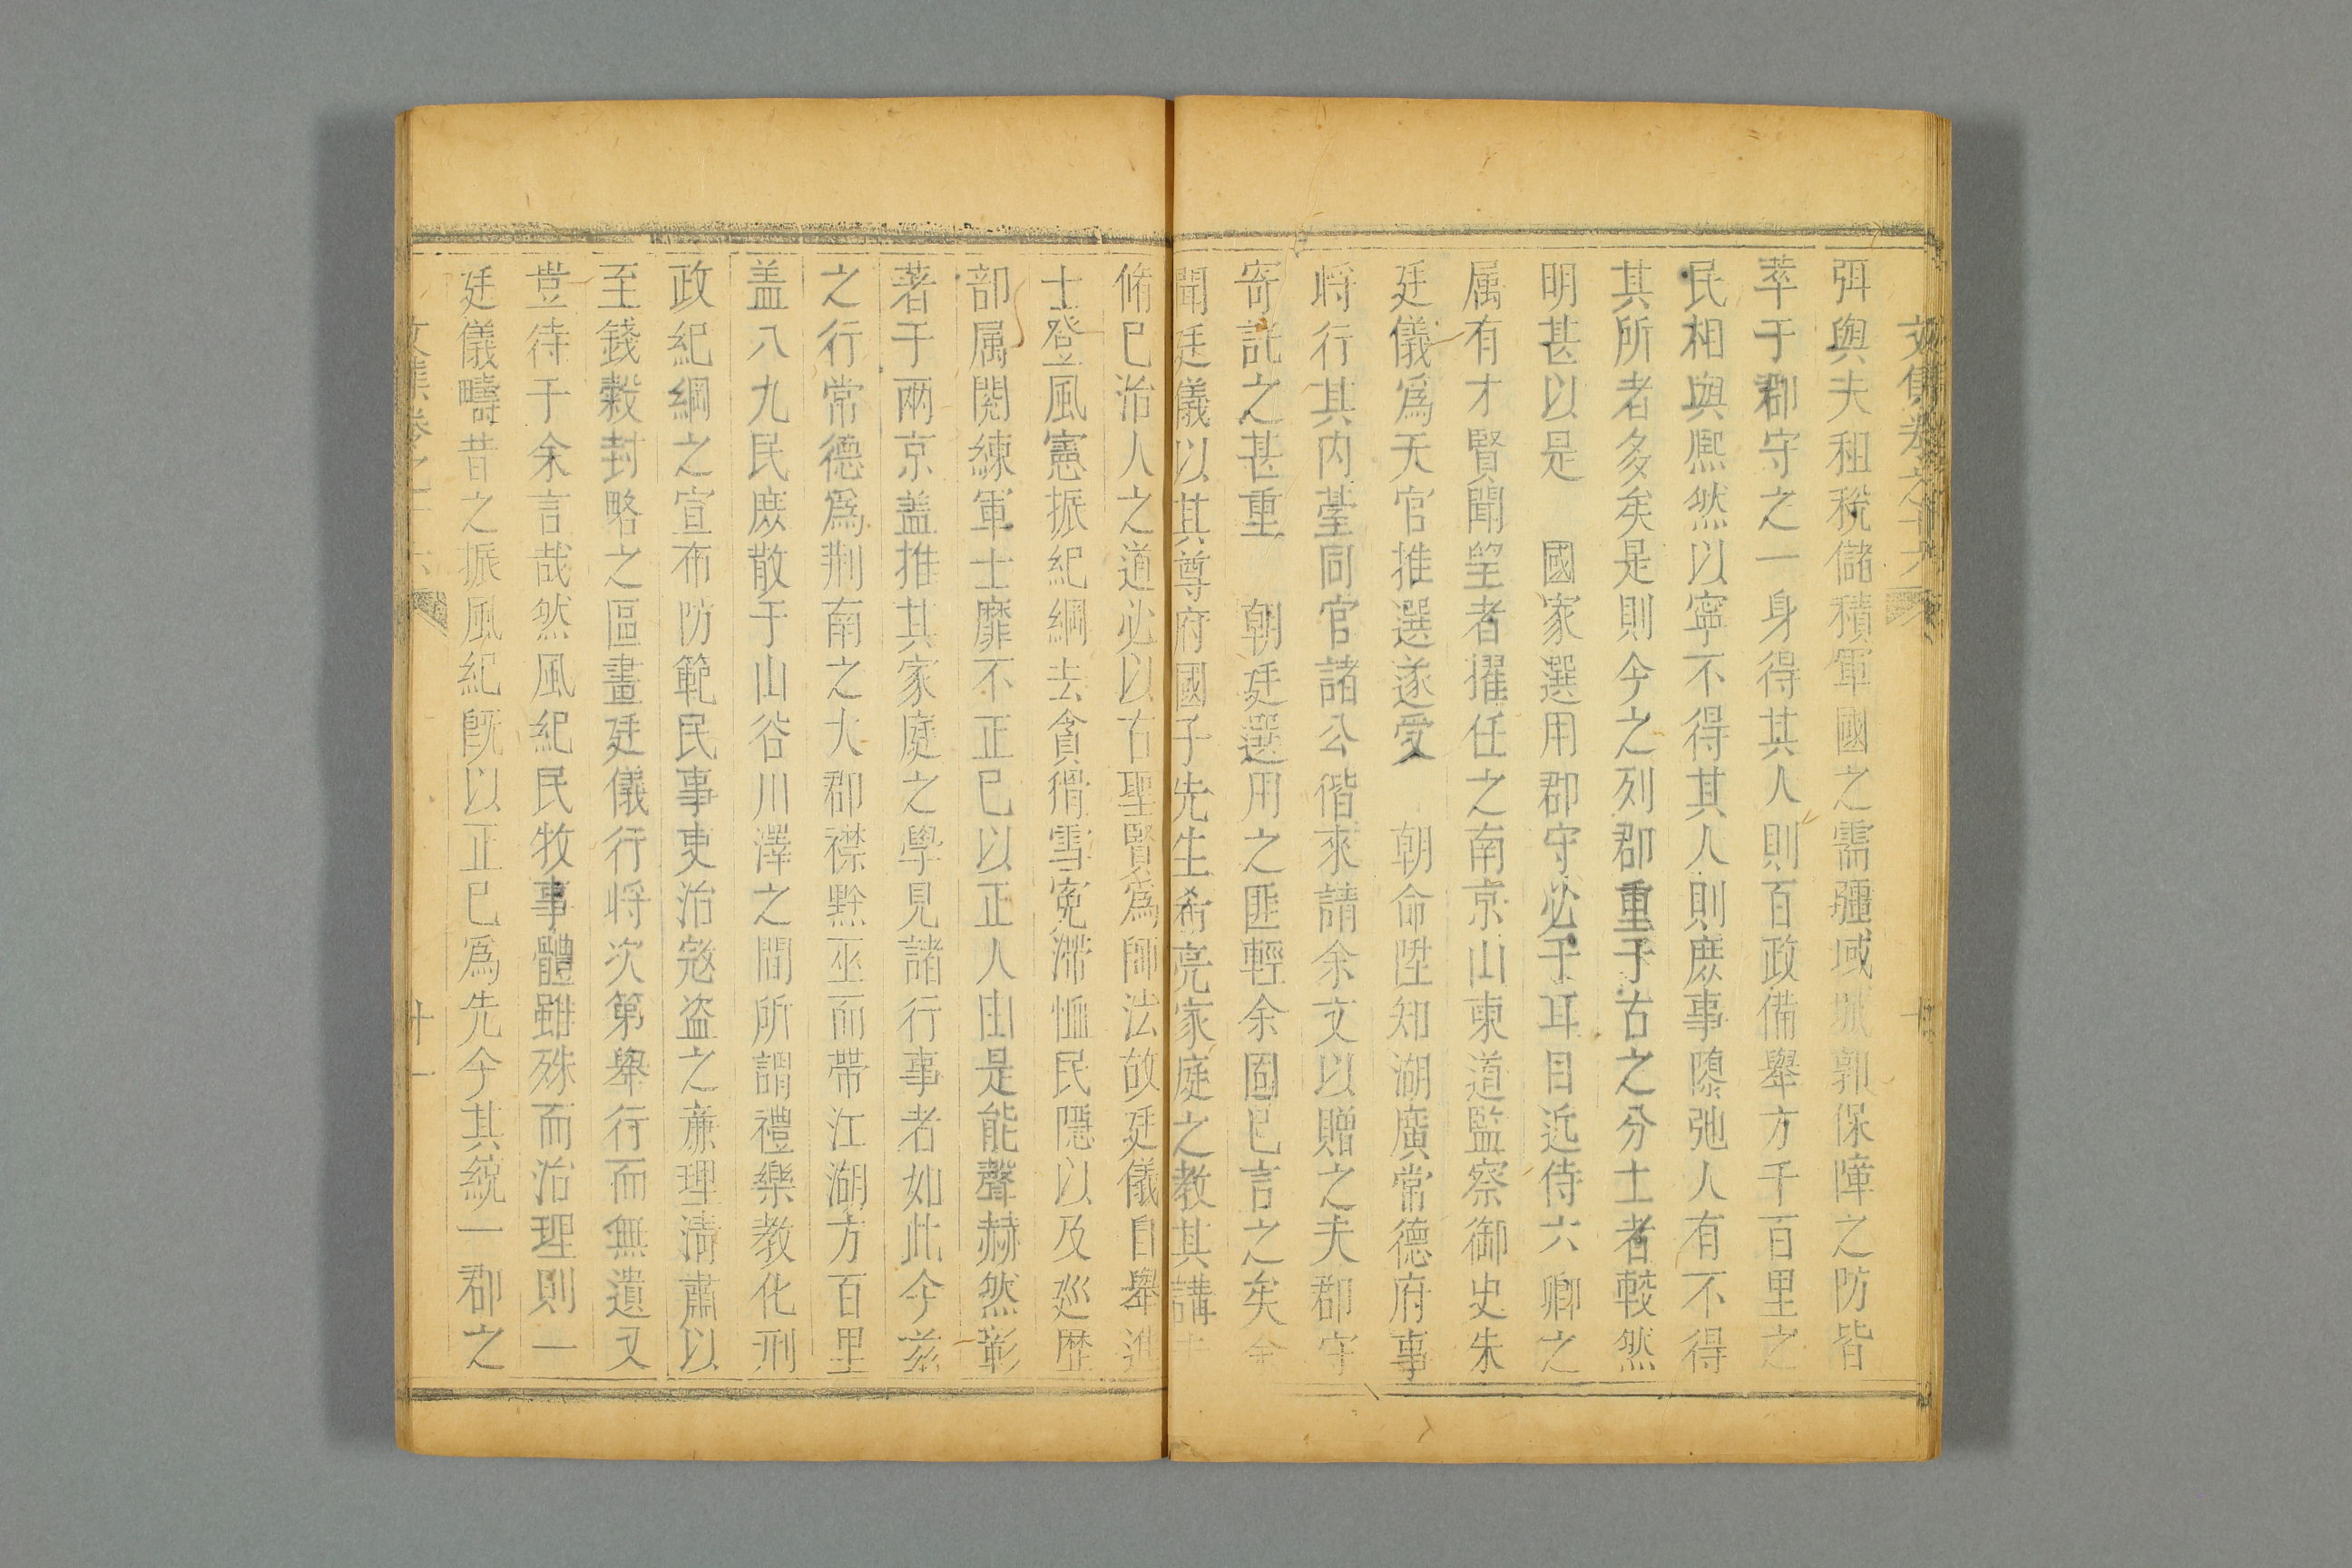 文集卷之十六
弭與夫租稅儲積軍國之需疆域城郭保障之防皆
萃于郡守之一身得其人則百政備舉方千百里之
民相與熈然以寧不得其人則庶事隳弛人有不得
其所者多矣是則今之列郡重于古之分土者較然
明甚以是　國家選用郡守必于耳目近侍六卿之
属有才賢聞望者擢任之南京山東道監察御史朱
廷儀爲天官推選遂受　朝命陞知湖廣常德府事
将行其内臺同官諸公偕來請余文以贈之夫郡守
寄託之甚重　朝廷選用之匪輕余固已言之矣余
聞廷儀以其尊府國子先生希亮家庭之教其講
脩已治人之道必以古聖賢爲師法故廷儀自舉進
士登風憲振紀綱去貪猾雪寃滯恤民隱以及廵歴
部属閱練軍士靡不正已以正人由是能聲赫然彰
著于兩京盖推其家庭之學見諸行事者如此今兹
之行常德爲荆南之大郡襟黔巫而帶江湖方百里
盖八九民庶散于山谷川澤之間所謂禮樂教化刑
政紀綱之宣布防範民事吏治宼盗之亷理清肅以
至錢穀封略之區畫廷儀行将次第舉行而無遺又
豈待于余言哉然風紀民牧事體雖殊而治理則一
廷儀疇昔之振風紀旣以正已爲先今其統一郡之
文集卷之十六
十一